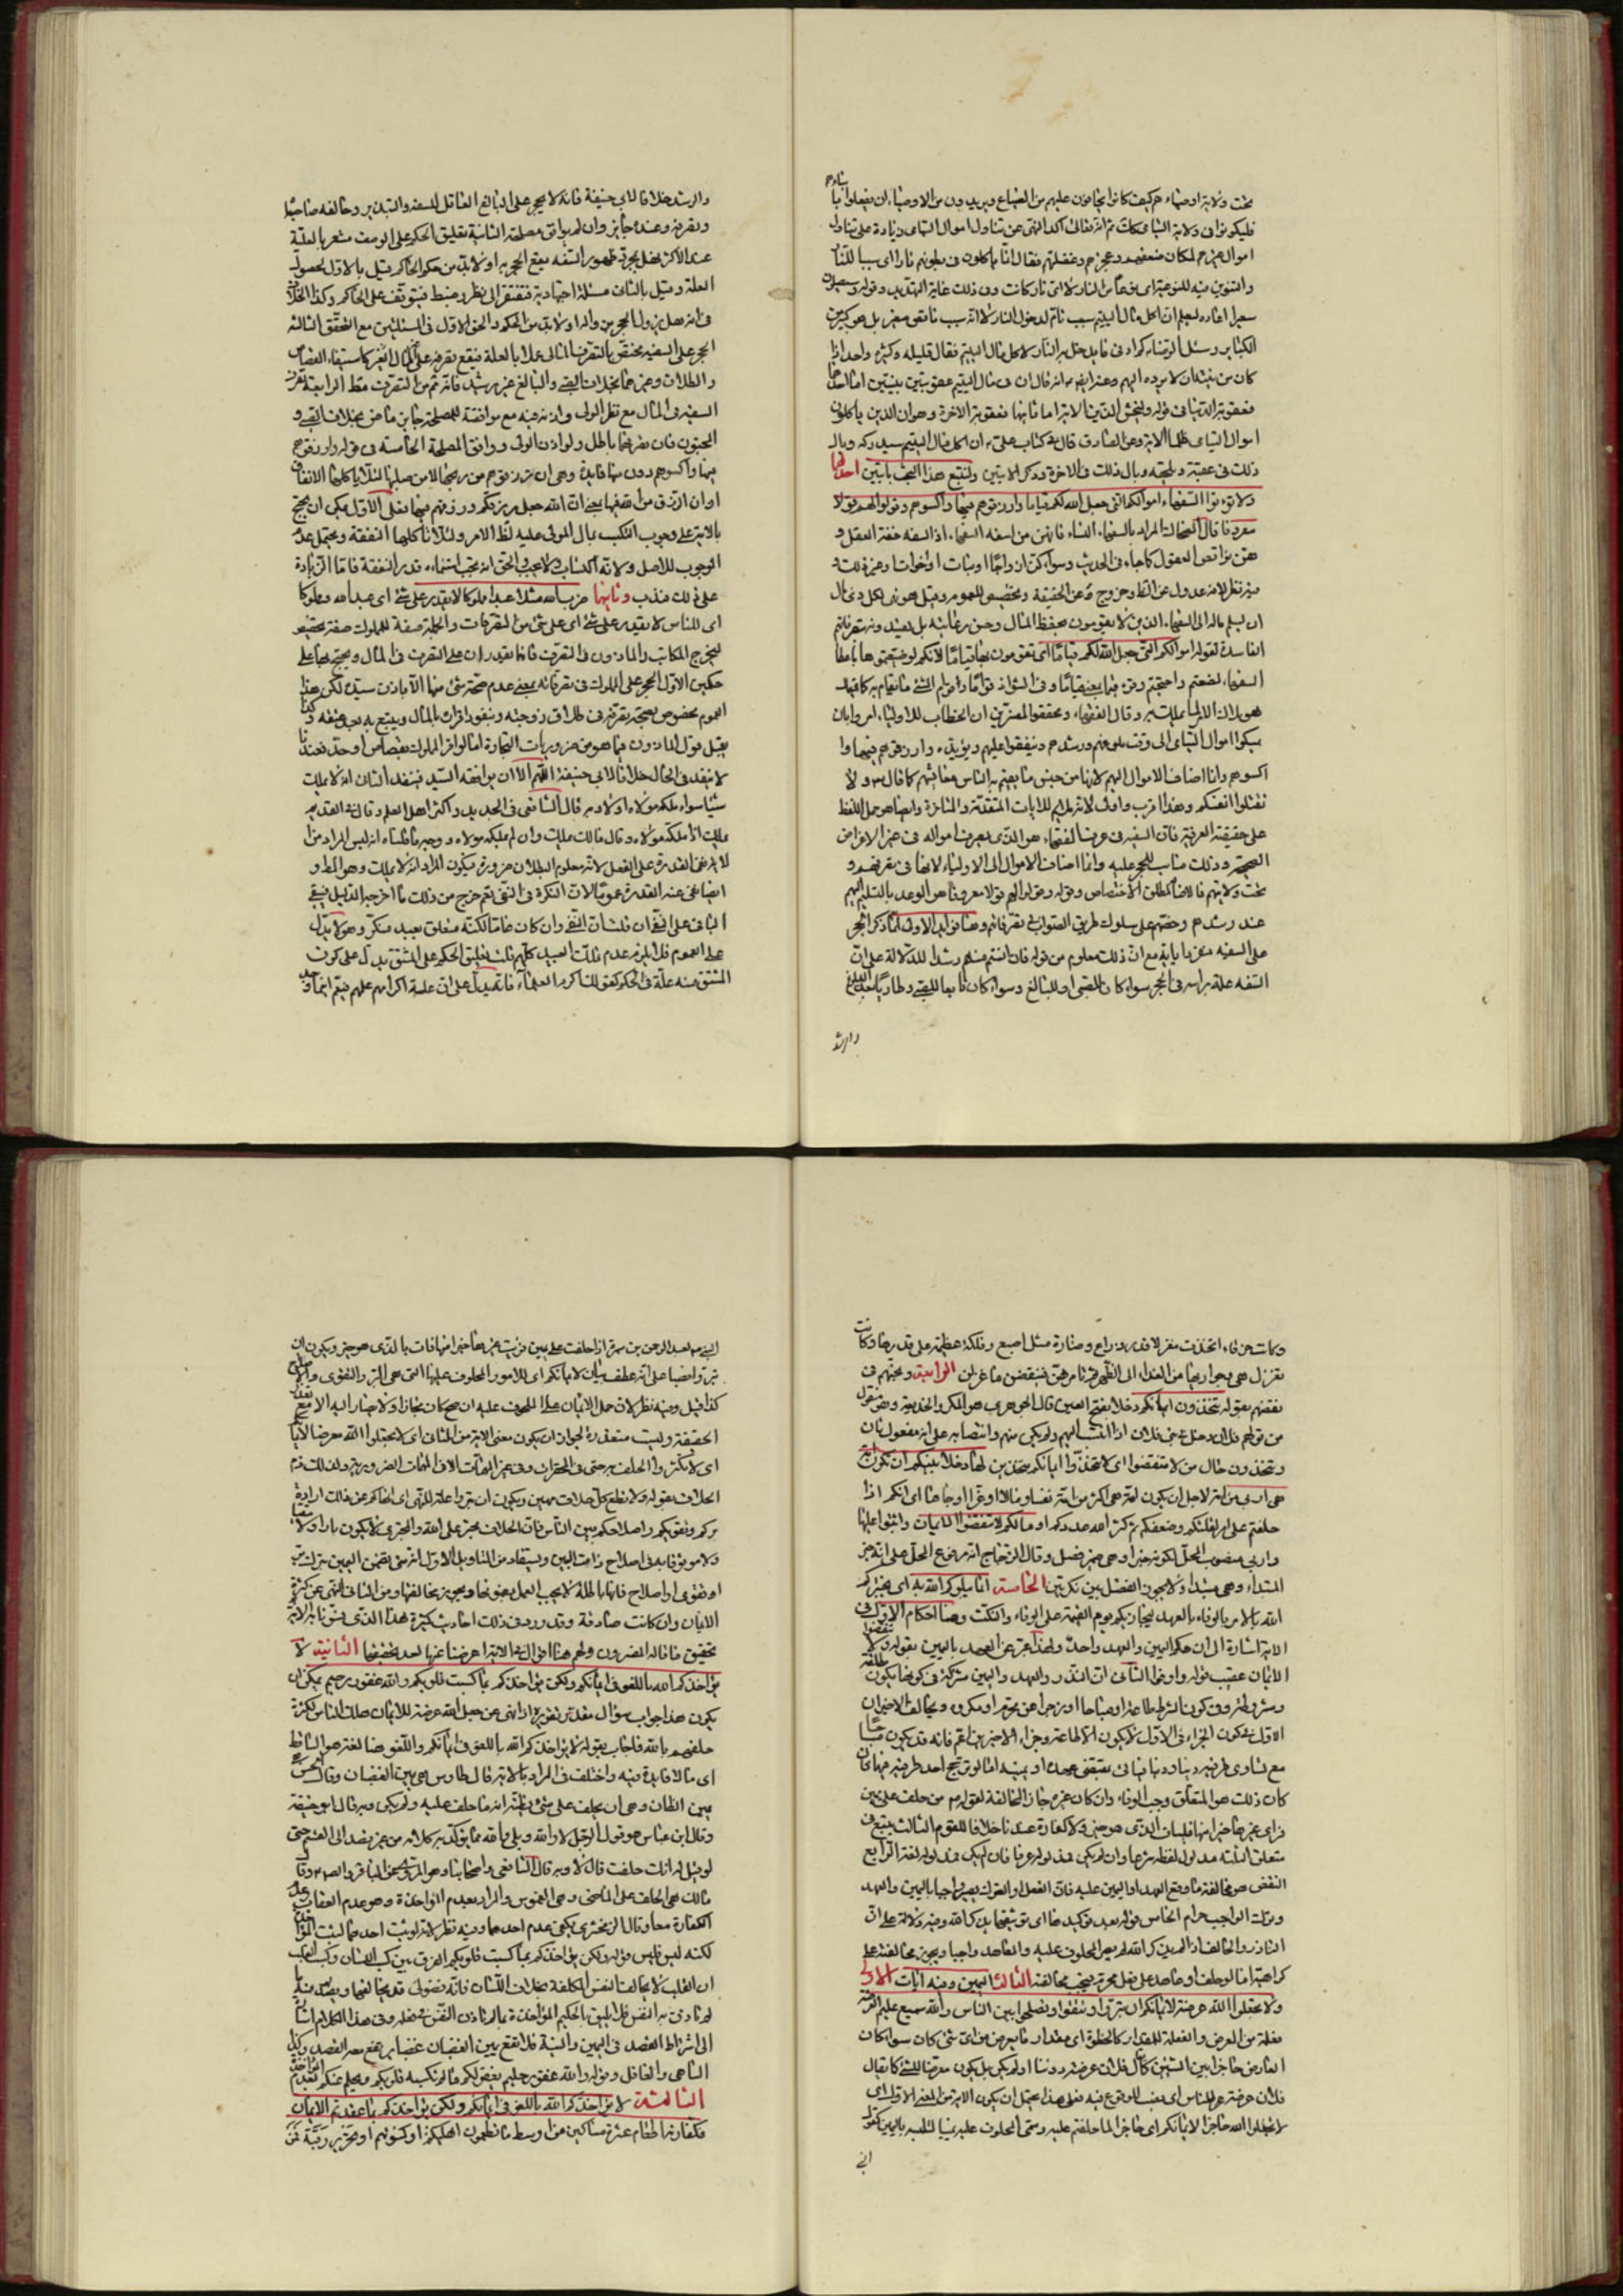 تحت ولاية اوصياء هم كيف كانوا يخافون عليهم من الضياع ويريدون من الاوصياء ان يفعلوا بابنائهم
فليكونوا فى ولاية اليتامى كذلك ثم انه تعالى اكد النهى عن تناول اموال اليتامى زيادة على تناول
اموال غيرهم لمكان ضعفهم وعجزهم وغفلتهم فقال انما ياكلون فى بطونهم نارا اى سببا للنار
والتنوين فيه للنوعية اى نوعا من النار لا اى نار كانت وفى ذلك غاية التهديد وقوله وسيصلون
سعيرا اعاده ليعلم ان اكل مال اليتيم سبب تام لدخول النار لا انه سبب ناقص مغفر بل هو كبيرة من
الكبائر وسئل الرضا كم ادنى ما يدخل به النار لاكل مال اليتيم فقال قليله وكثيره واحد اذا
كان من نيته ان لا يرده اليهم وعنه ايضا انه قال ان فى مال اليتيم عقوبتين بينتين اما احدهما
فعقوبة الدنيا فى قوله وليخش الذين الاية اما ثانيها فعقوبة الاخرة وهو ان الذين ياكلون
اموال اليتامى ظلما الاية وعن الصادق قال فى كتاب على ان اكل مال اليتيم سيدركه وبال
ذلك فى عقبه ويلحقه وبال ذلك فى الاخرة وذكر الايتين ولنتبع هذا البحث بايتين احدهما
ولا تؤتوا السفهاء اموالكم التى جعل الله لكم قياما وارزقوهم فيها واكسوهم وقولوا لهم قولا
معروفا قال الضحاك المراد بالسفهاء النساء فانهن من اسفه السفهاء اذ السفه خفة العقل و
هن نواقص العقول كما جاء فى الحديث وسواء كن ازواجا او بنات او اخوات وغير ذلك و
فيه نظر لانه عدول عن الظاهر وخروج عن الحقيقة وتخصيص للعموم وقيل هو نهى لكل ذى مال
ان يسلم ماله الى السفهاء الذين لا يقومون بحفظ المال وحسن رعايته بل يفسدونه بتصرفاتهم
الفاسدة لقوله اموالكم التى جعل الله لكم قياما اى تقومون بها قياما لانكم لو ضيعتموها باعطا
السفهاء لضعتم واحتجتم وقرئ قيما بمعنى قياما وفى الشواذ قواما وقوام الشئ ما يقام به كما يقال
هو ملاك الامر لما يملك به وقال الفقهاء ومحققوا المفسرين ان الخطاب للاولياء امروا بان
يمسكوا اموال اليتامى الى وقت بلوغهم ورشدهم وينفقوا عليهم ويؤيده وارزقوهم فيها وا
اكسوهم وانما اضاف الاموال اليهم لانها من جنس ما يقيم به الناس معايشهم كما قال ولا
تقتلوا انفسكم وهذا اقرب واولى لانه ملايم للايات المتقدمة والمتاخرة وايضا هو حمل اللفظ
على حقيقته العرفية فان السفيه فى عرف الفقهاء هو الذى يصرف امواله فى غير الاغراض
الصحيحة وذلك مناسب للحجر عليه وانما اضاف الاموال الى الاولياء لانها فى تصرفهم و
تحت ولايتهم
عند رشدهم وحضهم على سلوك طريق الصواب فى تصرفاتهم وهنا فوائد الاولى لما ذكر الحجر
على السفيه
السفه علة براسه فى الحجر سواء كان للصبى او للبالغ وسواء كان تابعا للصبى او طاريا بعد البلوغ
والرشد
والرشد خلافا لابى حنيفة فانه لا يحجر على البالغ العاقل للسفه والتبذير وخالفه صاحباه
وتصرفه عنده جايز وان لم يوافق مصلحة الثانية تعليق الحكم على الوصف مشعر بالعلية
عند الاكثر فهل بمجرد ظهور السفه يقع الحجر به او لا بد من حكم الحاكم قيل بالاول لحصول
العلة وقيل بالثانى مسئلة اجتهادية فتفتقر الى نظر وضبط فيتوقف على الحاكم وكذا الخلاف
فى انه هل يزول الحجر بزواله او لا بد من الحكم والحق الاول فى المسئلتين مع التحقق الثالثة
الحجر على السفيه مختص بالتصرف المالى عملا بالعلة فيقع تصرفه فى غير المال كاستيفاء القصاص
والطلاق وغيرهما بخلاف الصبى والبالغ غير رشيد فانه ثم من التصرف مطلقا الرابعة تصرف
السفيه فى المال مع نظر الولى واذنه فيه مع موافقته للمصلحة جايز ماض بخلاف الصبى و
المجنون فان تصرفهما باطل ولو اذن الولى ووافق المصلحة الخامسة فى قوله وارزقوهم
فيها واكسوهم دون منها فايدة وهى ان يرزقوهم من ربحها لا من صلبها لئلا ياكلها الانفاق
بالاية على وجوب التكسب بمال المولى عليه لظاهر الامر ولئلا تاكلها النفقة ويحتمل عدم
الوجوب للاصل ولانه اكتساب ولا يجب والحق انه يجب استنماؤه قدر النفقة فاما الزيادة
على ذلك فندب وثانيها ضرب الله مثلا عبدا مملوكا لا يقدر على شئ اى عبدا لله ومملوكا
اى للناس لا يقدر على شئ اى على شئ من التصرفات والجملة صفة للمملوك صفة تخصيص
ليخرج المكاتب والماذون فى التصرف فانهما يقدران على التصرف فى المال ويحتج بها على
حكمين الاول الحجر على المملوك فى تصرفاته بمعنى عدم صحة شئ منها الا باذن سيده لكن هذا
العموم مخصوص بصحة تصرفه فى طلاق زوجته وبنفوذ اقراره بالمال ويتبع به بعد عتقه وكذا
يقبل قول الماذون فيما هو من ضروريات التجارة اما لو اقر المملوك بقصاص او حد فعندنا
لا ينفذ فى الحال خلافا لابى حنيفة اللهم الا ان يوافقه السيد فينفذ الثانى انه لا يملك
شيئا سواء ملكه مولاه اولا وبه قال الشافعى فى الجديد واكثر اهل العلم وقال فى القديم
يملك اذا ملكه مولاه وقال مالك يملك وان لم يملكه مولاه ووجه ما قلناه انه ليس المراد من
لا يقدر نفى القدرة على الفعل لانه معلوم البطلان ضرورة فيكون المراد انه لا يملك وهو المط و
ايضا نفى عنه القدرة عموما لان النكرة فى النفى تعم خرج من ذلك ما اخرجه الدليل فبقى
الباقى على النفى
على العموم فلا يلزم عدم تملك العبيد كلهم قلت تعليق الحكم على المشتق يدل على كون
المشتق منه علة فى الحكم كقولك اكرم العلماء فانه يدل على ان علة اكرامهم علمهم
وكانت خرقاء اتخذت مغزلا قدر ذراع وصنارة مثل اصبع وفلكة عظيمة على قدرها وكانت
تغزل هى وجواريها من الغداة الى الظهر ثم تامرهن فينقضن ما غزلن الرابعة وبخهم فى
نقضهم بقوله تتخذون ايمانكم دخلا بفتح العين قال الجوهرى هو المكر والخديعة وهو منقول
من قولهم فلان دخل فى بنى فلان اذا انتسب اليهم ولم يكن منهم وانتصابه على انه مفعول ثان
وتتخذون حال من لا تنقضوا اى لا تتخذوا ايمانكم متخذين لها دخلا بينكم ان تكون امة
هى اربى من امة لاجل ان يكون امة هى اكثر من امة نفسا ومالا او عزا وجاها اى انكم اذا
حلفتم على امر لقلتكم وضعفكم ثم كثر الله عددكم او مالكم لا تنقضوا الايمان واثبتوا عليها
واربى منصوب المحل لكونه خبرا وهى ضمير فصل وقال الزجاج انه مرفوع المحل على انه خبر
المبتداء وهى مبتداء ولا يجوز الفصل بين نكرتين الخامسة انما يبلوكم الله به اى يختبركم
الله بالامر بالوفاء بالعهد ليجازيكم يوم القيمة على الوفاء والنكث وهنا احكام الاول فى
الاية اشارة الى ان حكم اليمين والعهد واحد ولهذا عبر عن العهد باليمين بقوله ولا تنقضوا
الايمان عقيب قوله واوفوا الثانى ان النذر والعهد واليمين مشتركة فى كونها يكون مطلقة
ومشروطة وفى كون الشرط طاعة او مباحا او زجرا عن محرم او مكروه ويخالف الاخيران
الاول فى كون الجزاء فى الاول لا يكون الا طاعة وجزاء الاخيرين اعم فانه قد يكون مباحا
مع تساوى طرفيه دينا ودنيا فيأتى بمقتضى عهده او يمينه اما لو ترجح احد طرفيه فيهما فان
كان ذلك هو المتعلق وجب الوفاء وان كان غيره جاز المخالفة لقوله من حلف على يمين
فراى غيرها خيرا منها فليات الذى هو خير ولا كفارة عندنا خلافا للقوم الثالث يتبع فى
متعلق الثلثة مدلول لفظه شرعا وان لم يكن فمدلوله عرفا فان لم يكن فمدلوله لغة الرابع
النقض هو مخالفة ما وقع العهد او اليمين عليه فان الفعل او الترك يصير واجبا باليمين والعهد
وترك الواجب حرام الخامس قوله بعد توكيدها اى توثيقها بذكر الله وفيه دلالة على ان
كراهة اما لو حلف او عاهد على فعل محرم فيجب مخالفته الثالث اليمين وفيه ايات الاولى
ولا تجعلوا الله عرضة لايمانكم ان تبروا وتتقوا وتصلحوا بين الناس والله سميع عليم العرضة
فعلة من العرض والفعلة للمقدار كالخطوة اى مقدار ما يعرض من اى شئ كان سواء كان
العارض حاجزا بين الشيئين كما يقال فلان عرضة دوننا او لم يكن بل يكون معرضا للشئ كما يقال
فلان عرضة للناس اى نصب للوقوع فيه فعلى هذا يحتمل ان يكون الاية من المعنى الاول اى
لا تجعلوا الله حاجزا لايمانكم اى حاجزا لما حلفتم عليه وسمى المحلوف عليه يمينا لتلبسه باليمين كقول
النبى لعبد الرحمن بن سمرة اذا حلفت على يمين فرايت غيرها خيرا منها فات بالذى هو خير ويكون ان
تبروا منصبا على انه عطف بيان لايمانكم اى للامور المحلوف عليها التى هى البر والتقوى والاصلاح
كذا قيل وفيه نظر لان حمل الايمان على المحلوف عليه ان صح كان مجازا ولا يصار اليه الا مع تعذر
الحقيقة وليست متعذرة لجواز ان يكون معنى الاية من الثانى اى لا تجعلوا الله معرضا لايمانكم
اى لا تكثروا الحلف به حتى فى المحقرات وفى غير المهمات الا فى المهمات الضرورية ولذلك ذم
الحلاف بقوله ولا تطع كل حلاف مهين ويكون ان تبروا علة للنهى اى انهاكم عن ذلك ارادة
بركم وتقويكم واصلاحكم بين الناس فان الحلاف مجتر على الله والمجترى لا يكون بارا ولا متقيا
ولا موثوقا به فى اصلاح ذات البين ويستفاد من التاويل الاول انه متى تضمن اليمين ترك بر
او تقوى او اصلاح فانها باطلة لا يجب العمل بمضونها ويجوز مخالفتها ومن الثانى النهى عن كثرة
الايمان وان كانت صادقة وقد ورد فى ذلك احاديث كثيرة هذا الذى
الثانية لا
يؤاخذكم الله باللغو فى ايمانكم ولكن يؤاخذكم بما كسبت قلوبكم والله غفور رحيم يمكن ان
يكون هذا جواب سؤال مقدر تقريره انه لما نهى عن جعل الله عرضة للايمان هلك الناس لكثرة
حلفهم بالله فاجاب بقوله لا يؤاخذكم الله باللغو فى ايمانكم واللغو هنا لغة هو الساقط
اى ما لا فايدة فيه واختلف فى المراد بالاية قال طاوس هى يمين الغضبان وقال الحسن
يمين الظان وهى ان يحلف على شئ يظن انه ما حلف عليه ولم يكن وبه قال ابو حنيفة
وقال ابن عباس هو قول الرجل لا والله وبلى والله مما يوكد به كلامه من غير قصد الى القسم حتى
لو قيل له انك حلفت قال لا وبه قال الشافعى واصحابنا وهو المروى عن الباقر والصادق وقال
مالك هى الحلف على الماضى وهى الغموس والمراد بعدم المواخذة هو عدم العقاب وعدم
الكفارة معا وقال الزمخشرى يكفى عدم احدهما وفيه نظر لانه لو ثبت احدهما لثبت المؤاخذة
لكنه ليس فليس قوله ولكن يؤاخذكم بما كسبت قلوبكم الفرق بين كسب اللسان وكسب القلب
ان القلب لا يخالف النفس المكلفة بخلاف اللسان فانه فضولى قد يخالفها
الى اشتراط القصد فى اليمين والنية فلا تقع يمين الغضبان غضبا يرتفع معه القصد وكذا
الساهى والغافل وقوله والله غفور حليم يغفر لكم ما لم تكسبه قلوبكم ويحلم عنكم
الثالثة لا يؤاخذكم الله باللغو فى ايمانكم ولكن يؤاخذكم بما عقدتم الايمان
فكفارته اطعام عشرة مساكين من اوسط ما تطعمون اهليكم او كسوتهم او تحرير رقبة فمن